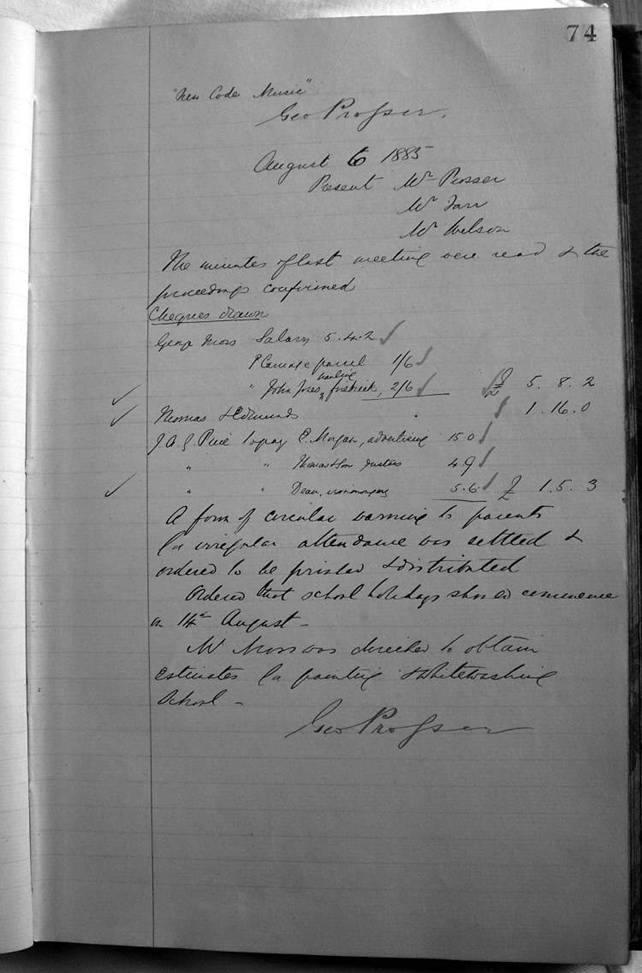 74
"New Code Music"
Geo Prosser.
August 6 1885
Present Mr Prosser
Mr Farr
Mr Wilson
The minutes of last meeting were read & the
proceedings confirmed
Cheques drawn
George Moss Salary 5.4.2
" Carriage parcel 1/6
" John Jones hauling 2/6 £ 5.8.2
Thomas Edmunds " 1.16.0
to pay E. Morgan, advertising 15.0
" " Thomas & Son dusters 4.9
" " Dean, ironmongery 5.6 £ 1.5.3
A form of circular warning to parents
for irregular attendance was settled &
ordered to be printed & distributed
Ordered that school holidays should commence
on 14th August –
Mr Moss was directed to obtain
estimates for painting & whitewashing
School –
Geo Prosser